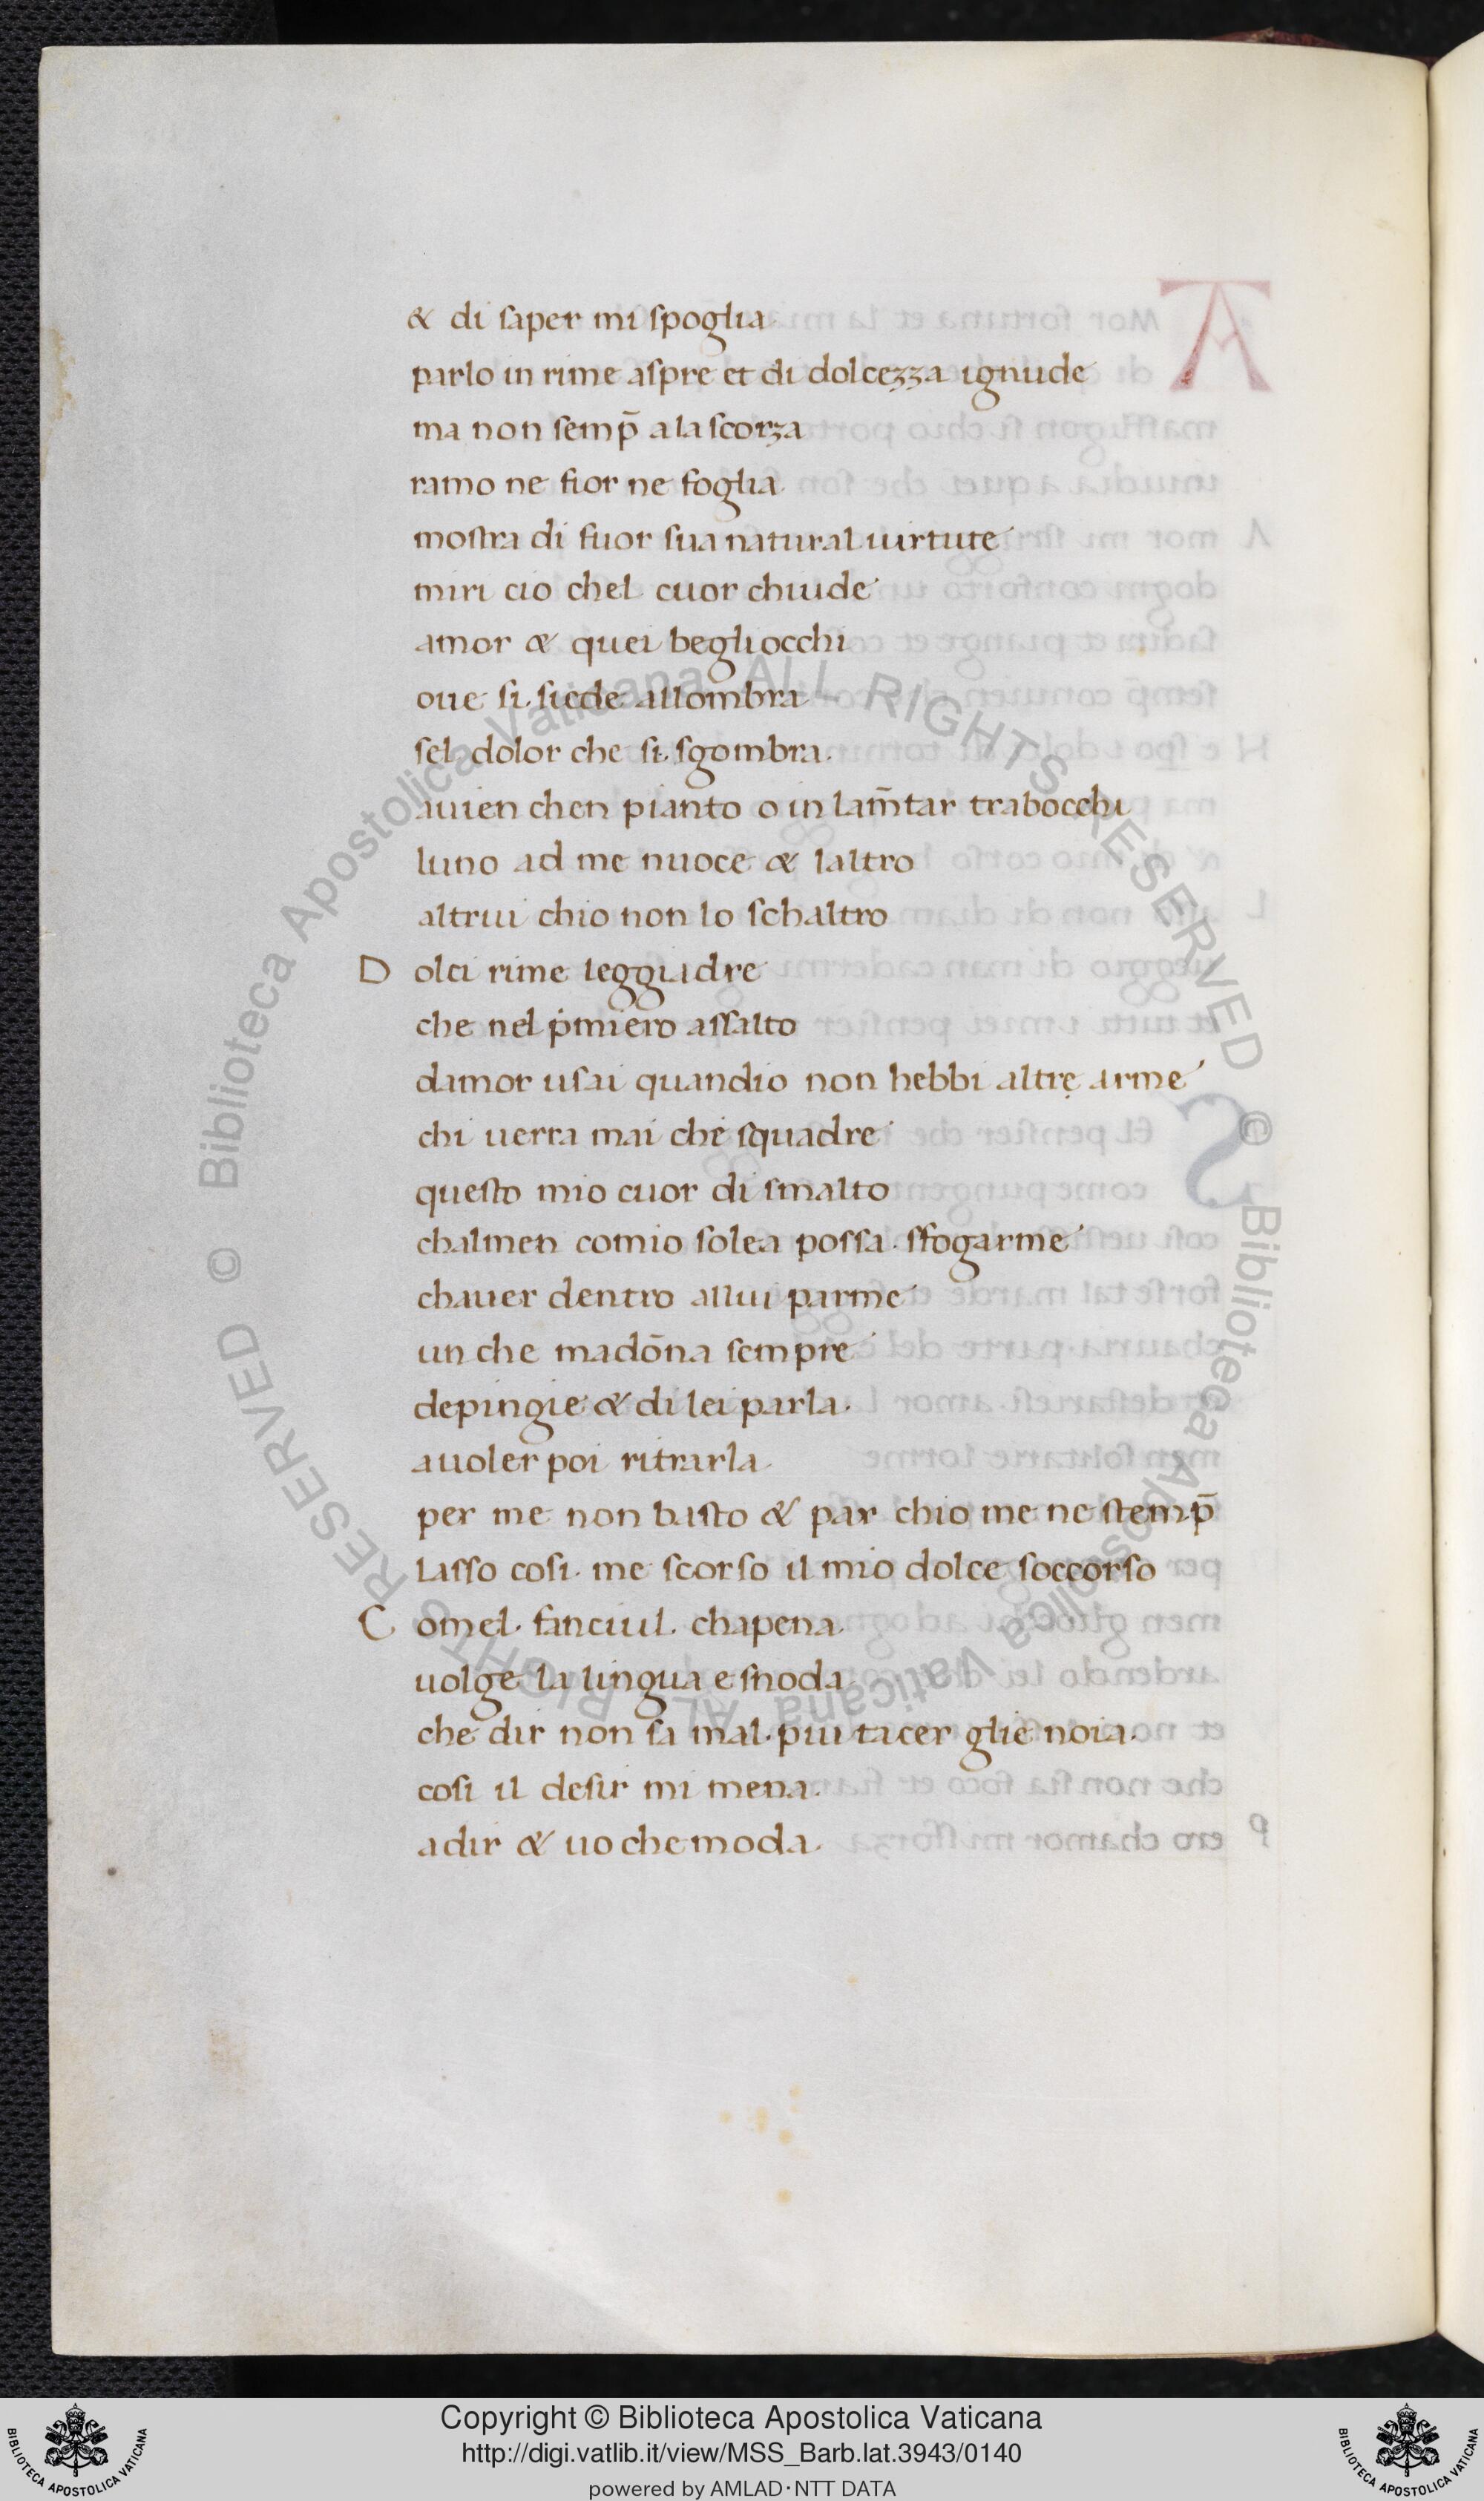 & di saper mi spoglia
parlo in rime aspre et di dolcezza ignude
ma non semp̄ a la scorza
ramo ne fior ne foglia
mostra di fuor sua natural uirtute
miri cio chel cuor chiude
amor & quei begliocchi
oue si siede allombra
sel dolor che si sgombra.
auien chen pianto o in lam̄tar trabocchi
luno ad me nuoce & laltro
altrui chio non lo schaltro
D olci rime leggiadre
che nel ṗmiero assalto
damor usai quandio non hebbi altrę arme
chi uerra mai che squadre
questo mio cuor di smalto
chalmen comio solea possa sfogarme
chauer dentro allui parme
un che madōna sempre
depingie & di lei parla.
auoler poi ritrarla
per me non basto & par chio me ne stemp̄
Lasso cosi. me scorso il mio dolce soccorso
C omel. fanciul. chapena
uolge la lingua e snoda
che dir non sa mal. piu tacer glie noia.
cosi il desir mi mena.
a dir & uo che moda.
© Biblioteca Apostolica Vaticana ALL RIGHTS RESERVED © Biblioteca Apostolica Vaticana ALL RIGHTS RESERVED
Copyright © Biblioteca Apostolica Vaticana
http://digi.vatlib.it/view/MSS_Barb.lat.3943/0140
powered by AMLAD·NTT DATA
BIBLIOTECA APOSTOLICA VATICANA
BIBLIOTECA APOSTOLICA VATICANA